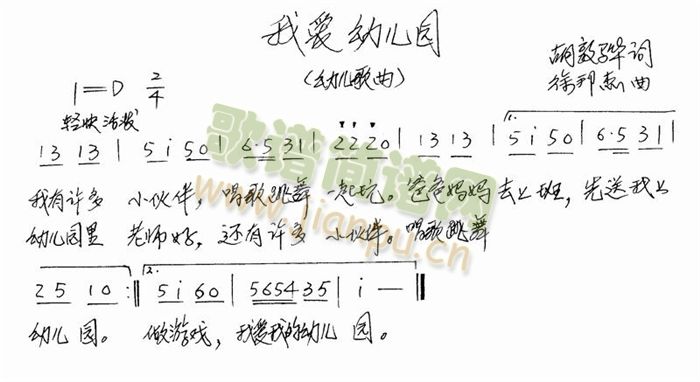 我爱幼儿园
(幼儿歌曲)
胡敦骅词
徐邦杰曲
1=D 2/4
轻快活泼
13 13 | 5 i 50 | 6·5 31 | 2220 | 13 13 | 1. 5 i 50 | 6·5 31 |
我有许多 小伙伴, 唱歌跳舞 一起玩。爸爸妈妈 去上班, 先送我上
幼儿园里 老师好, 还有许多 小伙伴。唱歌跳舞
25 10 :‖ 2. 5 i 60 | 5654 35 | i — ‖
幼儿园。 做游戏, 我爱我的幼儿园。
歌谱简谱网
www.jianpu.cn